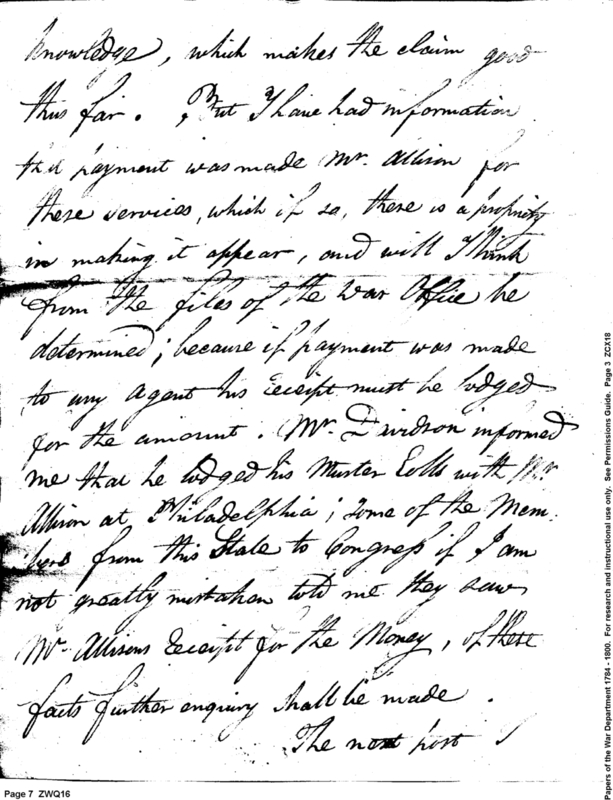 knowledge, which makes the claim good
thus far. But I have had information
that payment was made Mr. Allison for
these services, which if so, there is a propriety
in making it appear, and will I think
from the files of the War Office be
determined; because if payment was made
to any agent his receipt must be lodged
for the amount. Mr. Davidson informed
me that he lodged his Muster Rolls with Mr.
Allison at Philadelphia; some of the Mem:
bers from this State to Congress if I am
not greatly mistaken told me they saw
Mr. Allisons receipt for the Money, of these
facts further enquiry shall be made.
The next post I
Page 7 ZWQ16
Papers of the War Department 1784 - 1800. For research and instructional use only. See Permissions Guide. Page 3 ZCX18